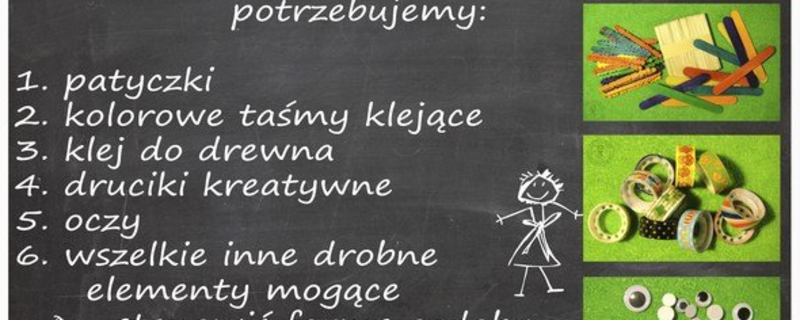 potrzebujemy:
1. patyczki
2. kolorowe taśmy klejące
3. klej do drewna
4. druciki kreatywne
5. oczy
6. wszelkie inne drobne
elementy mogące